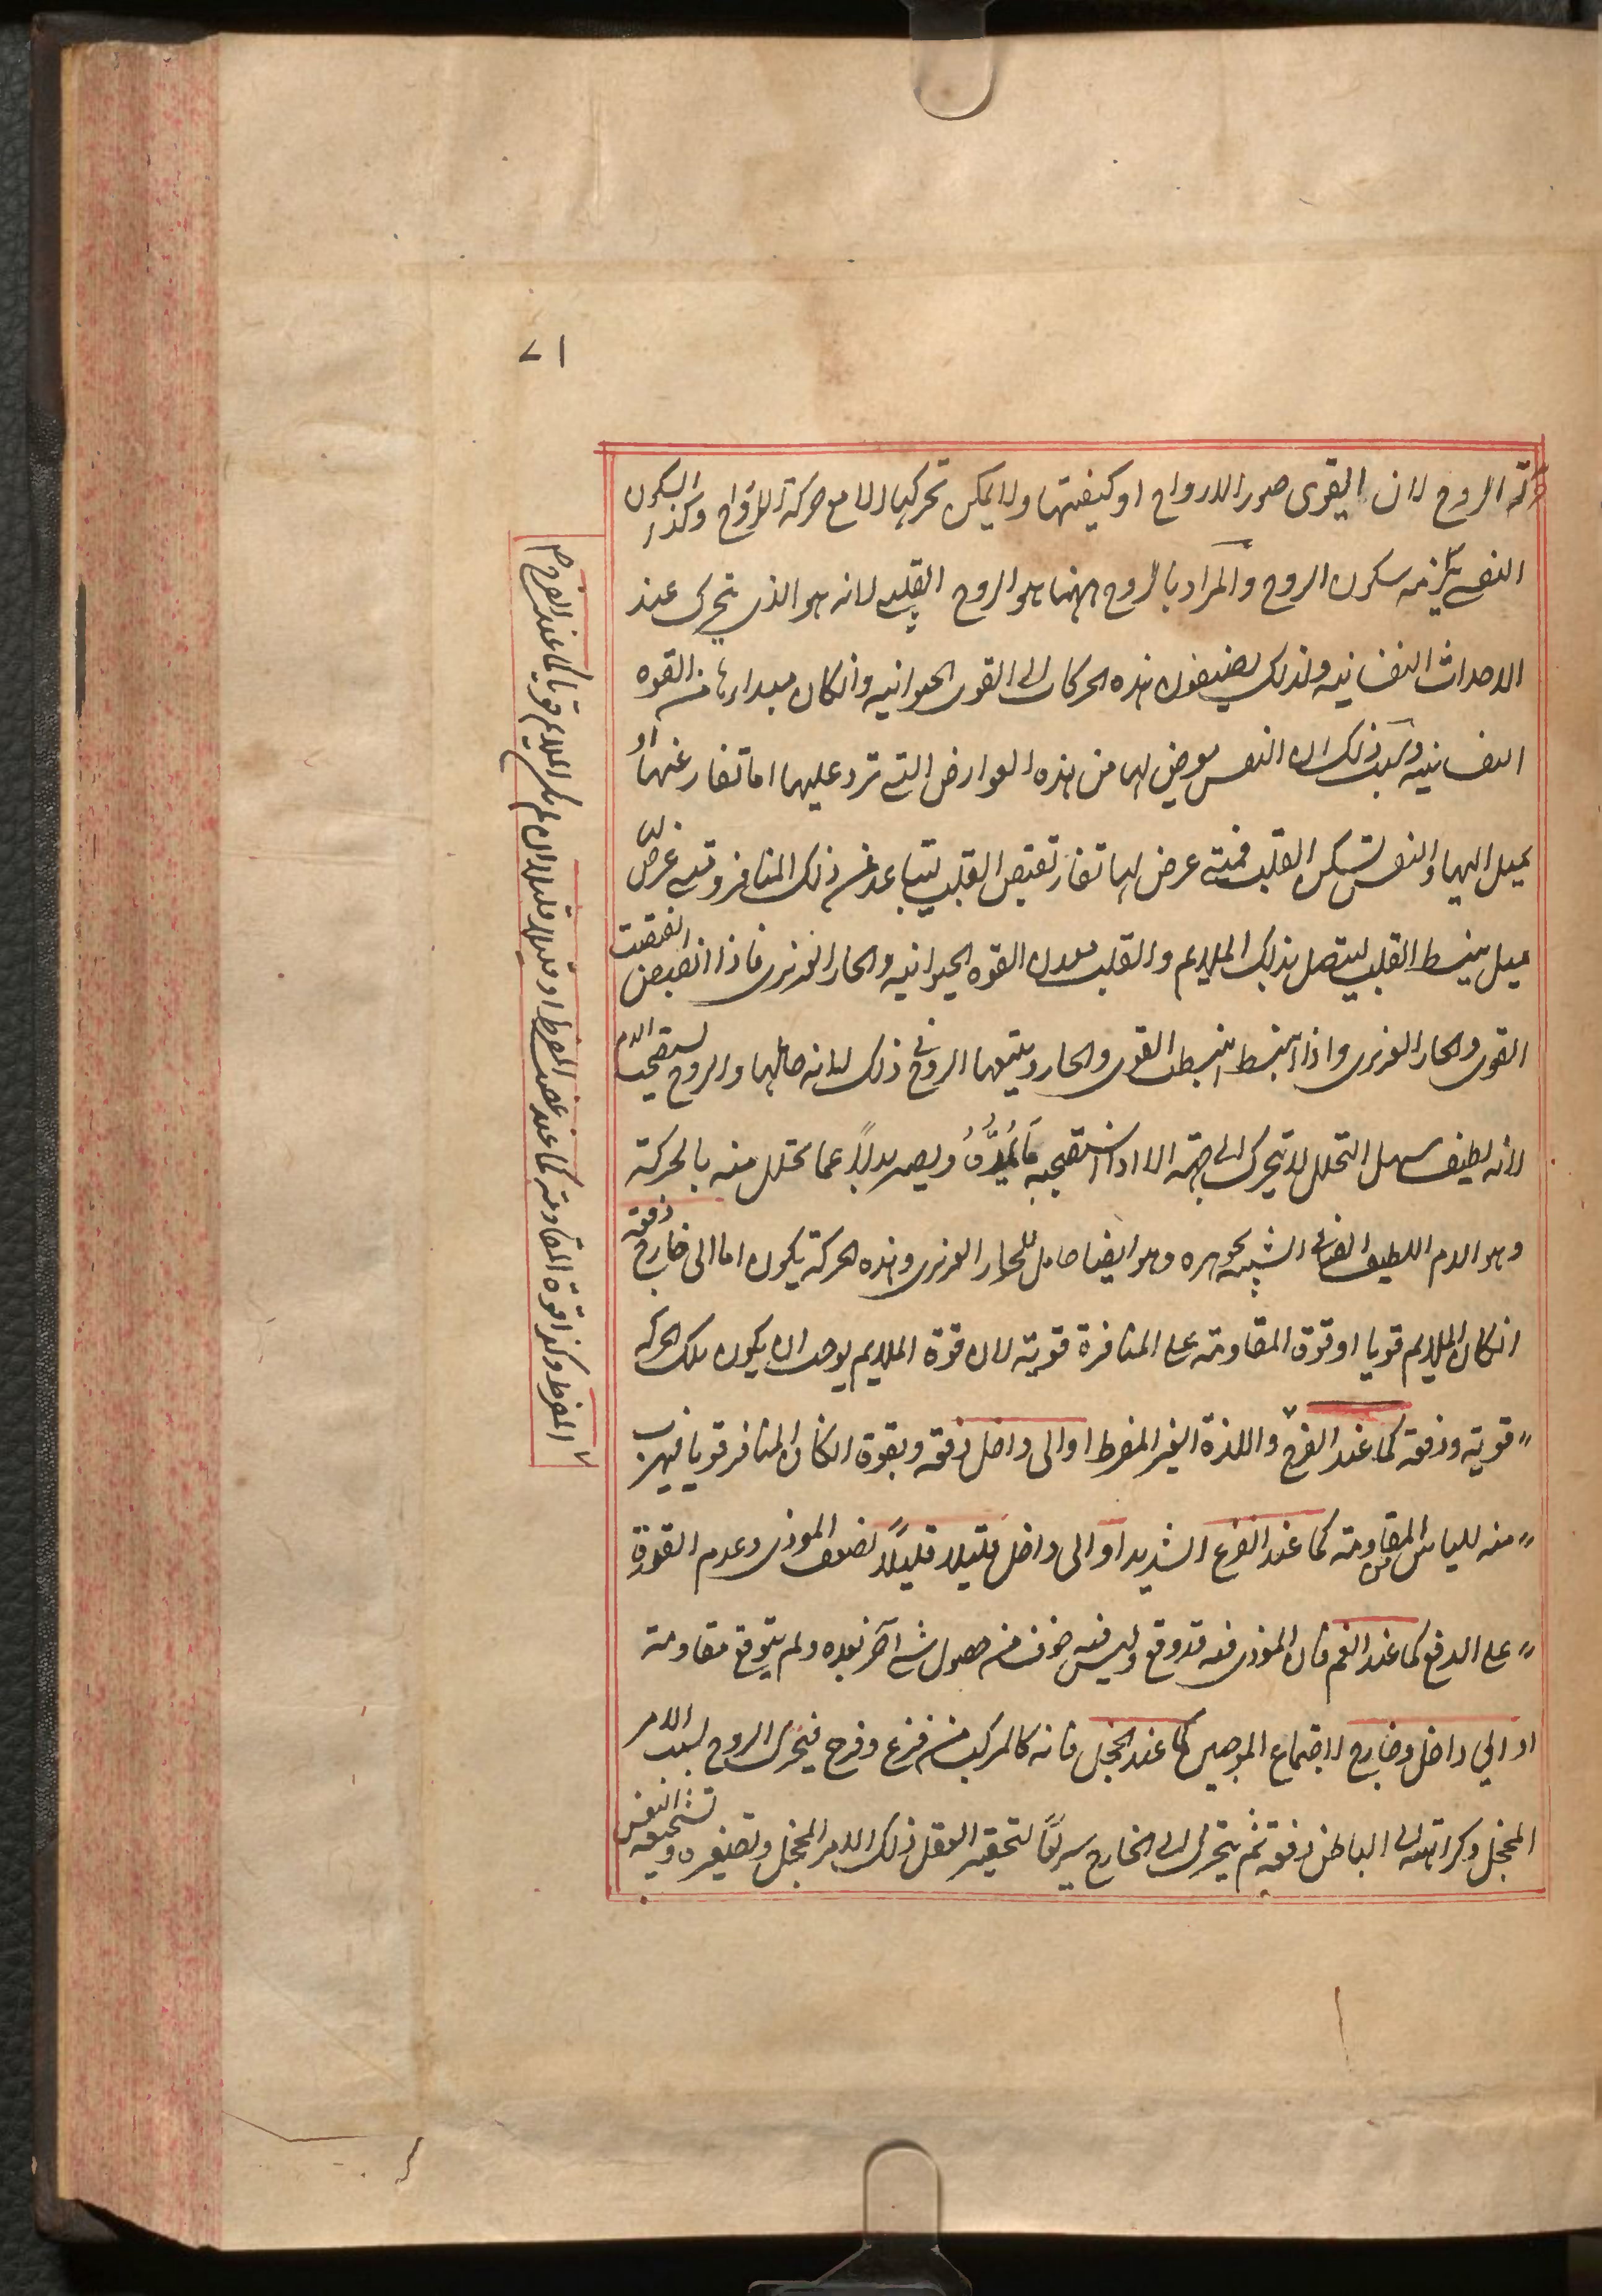 ٧١
حركة الروح لان القوى صور الارواح او كيفيتها ولا يمكن تحركها الا مع حركة الارواح وكذا السكون
النفسى يلزمه سكون الروح والمراد بالروح ههنا هو الروح القلبى لانه هو الذى يتحرك عند
الاحداث النفسانيه ولذلك يضيفون هذه الحركات الى القوى الحيوانيه وانكان مبداءها من القوه
النفسانيه وسبب ذلك ان النفس يعرض لها من هذه العوارض التى ترد عليها اما تنفار عنها او
يميل اليها والنفس تسكن القلب فمتى عرض لها تنفار تقبض القلب ليتباعد عن ذلك المنافر ومتى عرض لها
ميل ينبسط القلب ليتصل بذلك الملايم والقلب معدن القوه الحيوانيه والحار الغريزى فاذا انقبض انقبضت
القوى والحار الغريزى واذا انبسط انبسطت القوى والحار ويتبعها الروح فى ذلك لانه حاملها والروح يستصحب الدم
لانه لطيف سهل التحلل لا يتحرك الى جهة الا اذا استصحبه ما يمده ويصير بدلاً عما تحلل منه بالحركة
وهو الدم اللطيف الصافى الشبيه بجوهره وهو ايضا حامل للحار الغريزى وهذه الحركة يكون اما الى خارج دفعة
انكان الملايم قويا او قوة المقاومة على المنافرة قوية لان قوة الملايم يوجب ان يكون تلك الحركه
قوية ودفعة كما عند الفرح واللذة الغير المفرط او الى داخل دفعة وبقوة ان كان المنافر قويا فيهرب
منه للياس من المقاومة كما عند الفزع الشديد او الى داخل قليلا قليلاً لضعف الموذى وعدم القوة
على الدفع كما عند الغم فان الموذى فيه قد وقع وليس فيه خوف من حصول شى آخر بعده ولم يتوقع مقاومة
او الى داخل وخارج لاجتماع الموجبين كما عند الخجل فانه كالمركب من فزع وفرح فيتحرك الروح لسبب الامر
المخجل وكراهته الى الباطن دفعة ثم يتحرك الى الخارج سريعًا لتحقير العقل ذلك الامر المخجل وتصغيره وتشجيعه النفس
المفرط وكذا قوة المقاومة كما عند الغضب المفرط او قليلا قليلا ان لم يكن الملايم قويا كما عند الفرح